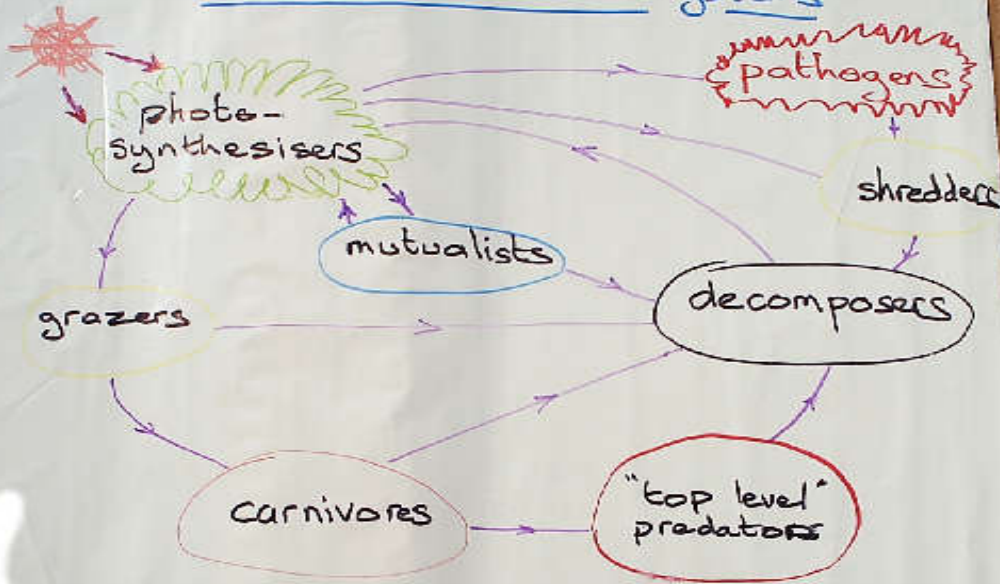 pathogens
photo-
synthesisers
shredders
mutualists
decomposers
grazers
carnivores
"top level"
predators